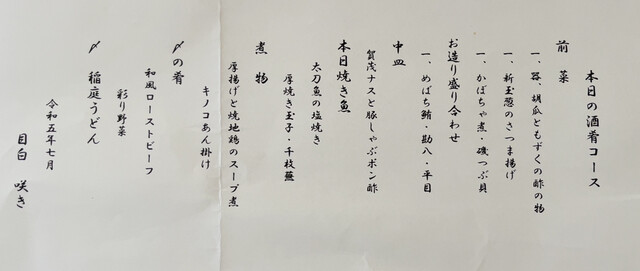 本日の酒肴コース
前菜
一、蓴、胡瓜ともずくの酢の物
一、新玉葱のさつま揚げ
一、かぼちゃ煮・磯つぶ貝
お造り盛り合わせ
一、めばち鮪・勘八・平目
中皿
賀茂ナスと豚しゃぶポン酢
本日焼き魚
太刀魚の塩焼き
厚焼き玉子・千枚蕪
煮物
厚揚げと焼地鶏のスープ煮
キノコあん掛け
〆の肴
和風ローストビーフ
彩り野菜
〆 稲庭うどん
令和五年七月
目白 咲き